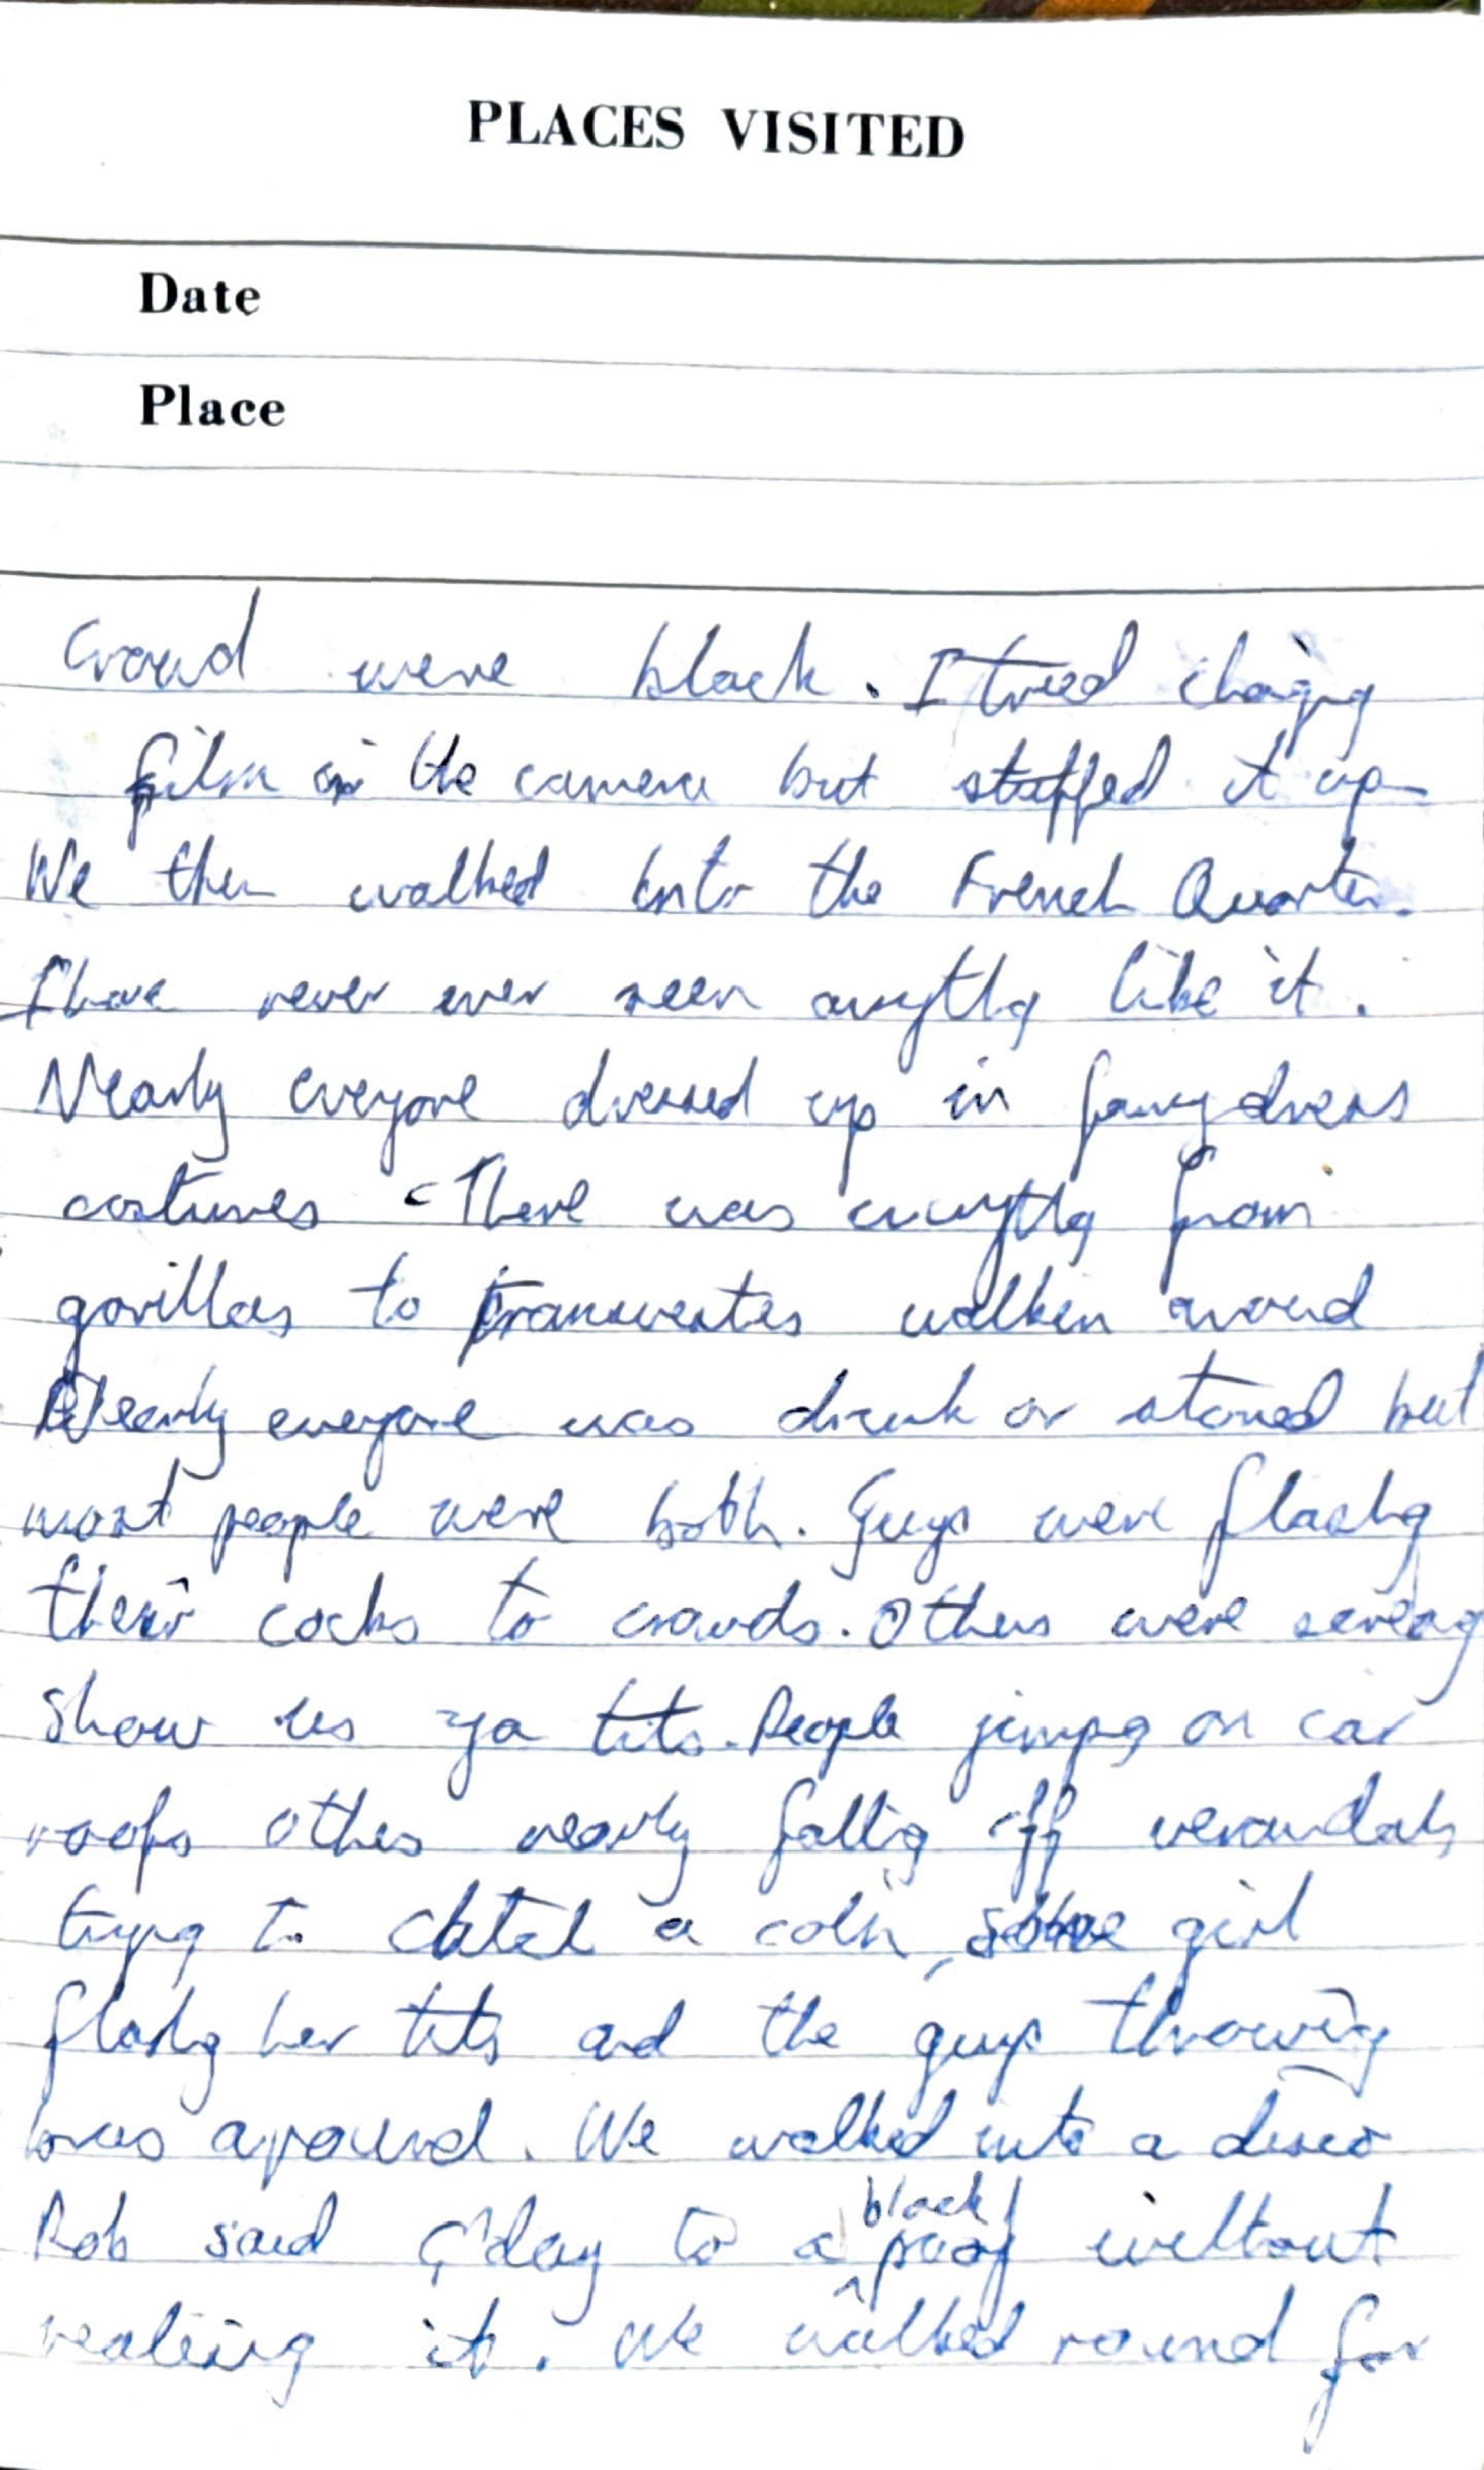 PLACES VISITED
Date
Place
crowd were black. I tried chaging
film in the camera but stuffed it up
We then walked into the French Quarter.
I have never ever seen anythg like it.
Nearly everyone dressed up in fancy dress
costumes - There was everythg from
gorillas to transvestes walken around
Nearly everyone was drunk or stoned but
most people were both. Guys were flashg
their cocks to crowds. Others were
show us ya tits. People jumpg on car
roofs others nearly fallig off verandahs
tryng to catch a coin, some girl
flashg her tits and the guys throwing
bras around. We walked into a disco
Rob said G'day to a black poof without
realisig it. We walked round for